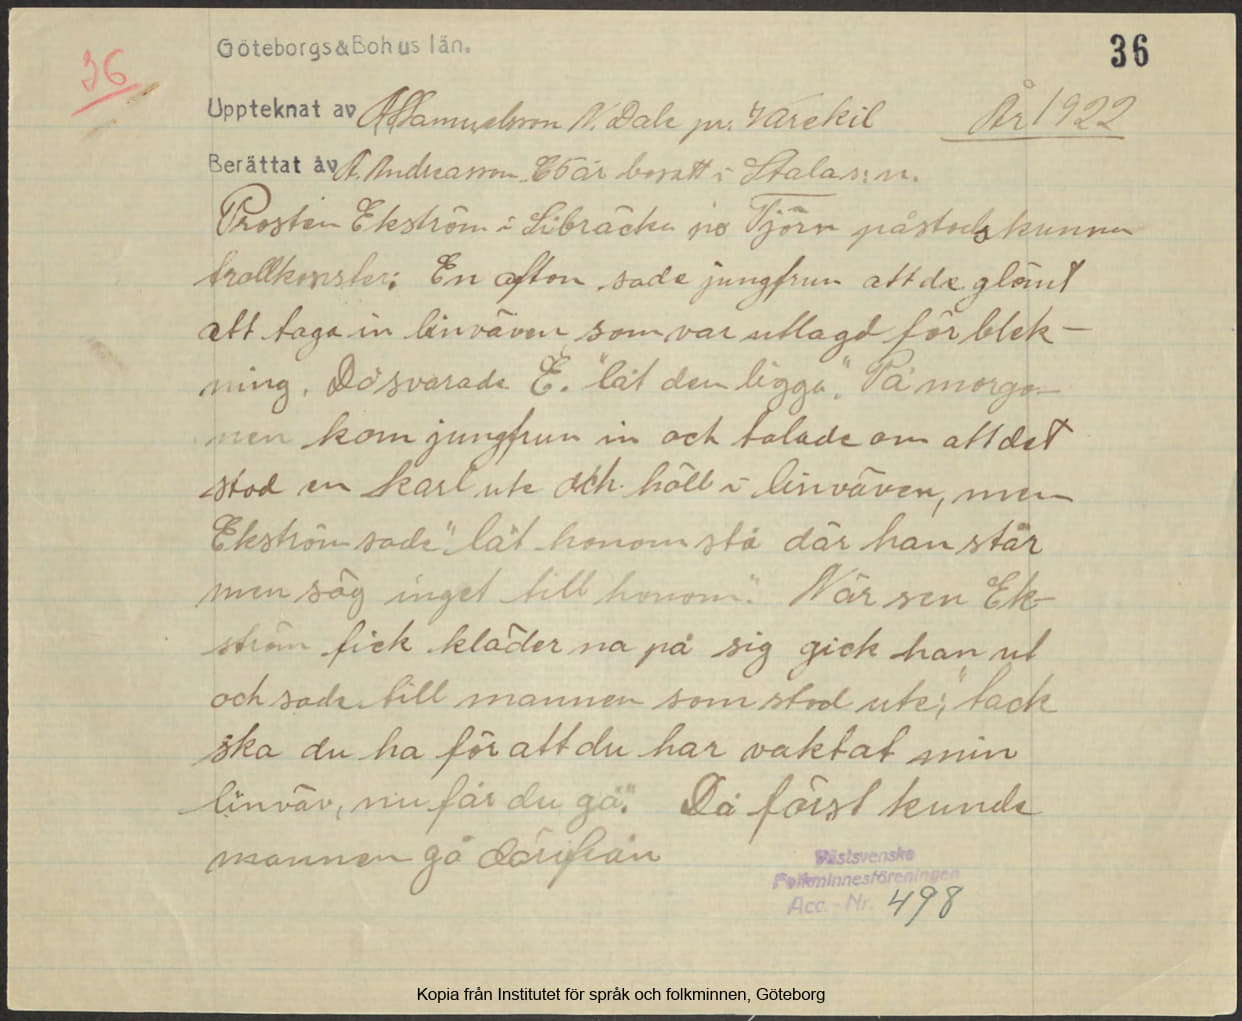 Göteborgs & Bohus län.
36
36
Uppteknat av A Samuelsson N. Dale pr. Varekil
År 1922
Berättat av A. Andreasson 65 år bosatt i Stala s:n.
Prosten Ekström i Sibräcka på Tjörn påstods kunna
trollkonster: En afton sade jungfrun att de glömt
att taga in linväven som var utlagd för blek-
ning. Då svarade E. "låt den ligga". På morgo-
nen kom jungfrun in och talade om att det
stod en karl ute och höll i linväven, men
Ekström sade "låt honom stå där han står
men säg inget till honom". När sen Ek-
ström fick kläderna på sig gick han ut
och sade till mannen som stod ute; "tack
ska du ha för att du har vaktat min
linväv, nu får du gå". Då först kunde
mannen gå därifrån
Västsvenska
Folkminnesföreningen
Acc.-Nr. 498
Kopia från Institutet för språk och folkminnen, Göteborg